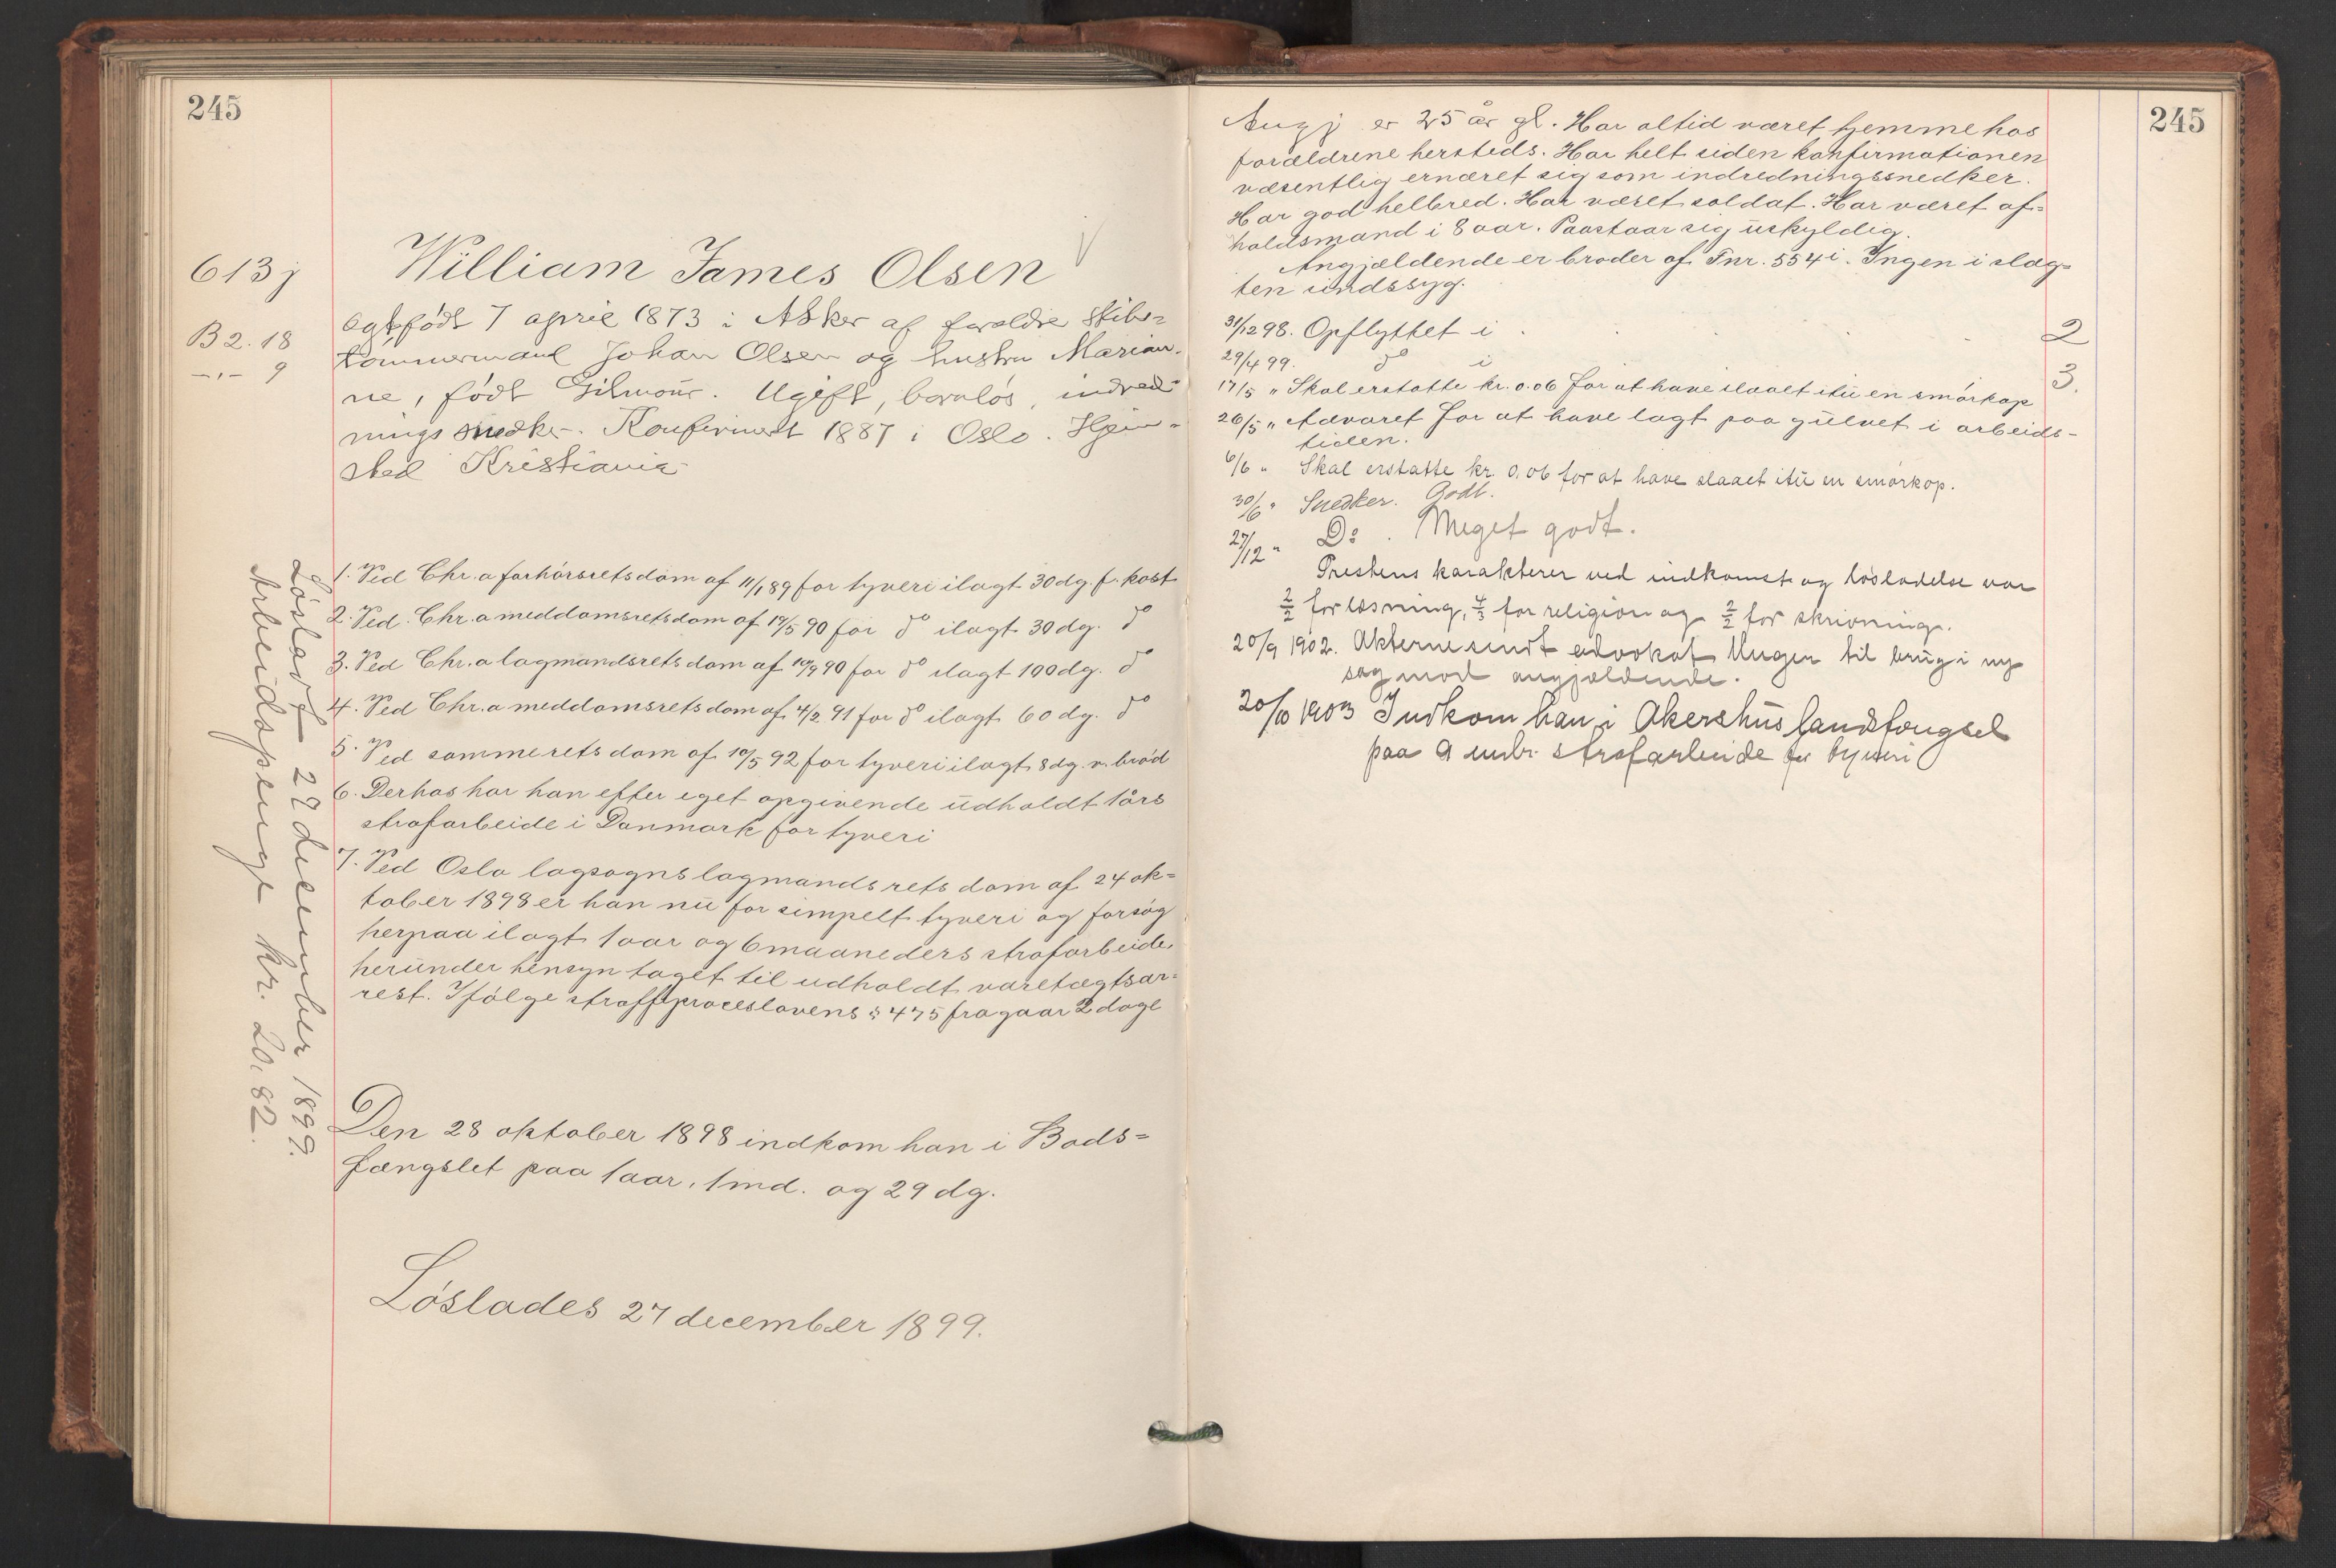 245
613j
B 2. 18
— „ — 9
William James Olsen
Ægtefødt 7 april 1873 i Asker af forældre skibs=
tømmermand Johan Olsen og hustru Marian-
ne, født Gilmour. Ugift, barnløs, indred-
ningssnedker. Konfirmert 1887 i Oslo. Hjem-
sted Kristiania
1. Ved Chr.a forhørsretsdom af 11/1 89 for tyveri ilagt 30 dg. f. kost
2. Ved Chr.a meddomsretsdom af 19/5 90 for do ilagt 30 dg. do
3. Ved Chr.a lagmandsretsdom af 10/9 90 for do ilagt 100 dg. do
4. Ved Chr.a meddomsretsdom af 4/2 91 for do ilagt 60 dg. do
5. Ved samme rets dom af 10/5 92 for tyveri ilagt 8 dg. v. brød
6. Derhos har han efter eget opgivende udholdt 1 års
strafarbeide i Danmark for tyveri
7. Ved Oslo lagsogns lagmandsrets dom af 24 ok=
tober 1898 er han nu for simpelt tyveri og forsøg
herpaa ilagt 1 aar og 6 maaneders strafarbeide,
herunder hensyn taget til udholdt varetægtsar=
rest. Ifølge straffeproceslovens § 475 fragaar 2 dage
Den 28 oktober 1898 indkom han i Bods=
fængslet paa 1 aar, 1 md. og 29 dg.
Løslades 27 december 1899.
Løsladt 27 december 1899.
Arbeidspenge kr. 20,82.
245
Angj er 25 år gl. Har altid været hjemme hos
forældrene hersteds. Har helt siden konfirmationen
væsentlig ernæret sig som indredningssnedker.
Har god helbred. Har været soldat. Har været af=
holdsmand i 8 aar. Paastaar sig uskyldig.
Angjældende er broder af Fnr. 554i. Ingen i slæg=
ten sindssyg.
31/12 98. Opflyttet i . . . . 2
29/4 99. do i 3.
17/5 „ Skal erstatte kr. 0.06 for at have slaaet itu en smørkop
26/5 „ Advaret for at have lagt paa gulvet i arbeids-
tiden.
6/6 „ Skal erstatte kr. 0,06 for at have slaaet itu en smørkop.
30/6 „ Snedker. Godt.
27/12 „ Do. Meget godt.
Prestens karakterer ved indkomst og løsladelse var
2/2 for læsning, 4/3 for religion og 2/2 for skrivning.
20/9 1902. Akterne sendt advokat til brug i ny
sag mod angjældende.
20/10 1903 Indkom han i Akershus landsfængsel
paa 9 mdr. strafarbeide for tyveri